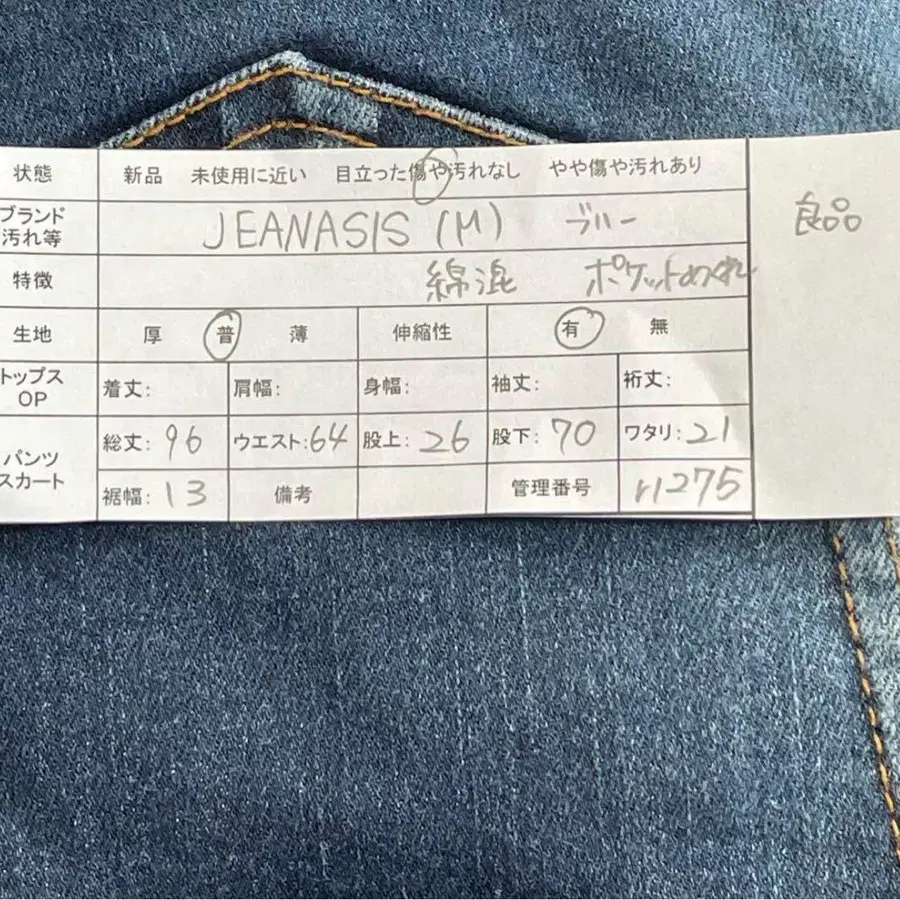 状態 新品 未使用に近い 目立った傷や汚れなし やや傷や汚れあり
良品
ブランド
汚れ等 JEANASIS (M) ブルー
特徴 綿混 ポケットめくれ
生地 厚 普 薄 伸縮性 有 無
トップス
OP 着丈: 肩幅: 身幅: 袖丈: 裄丈:
パンツ
スカート
総丈: 96 ウエスト: 64 股上: 26 股下: 70 ワタリ: 21
裾幅: 13 備考 管理番号 r1275